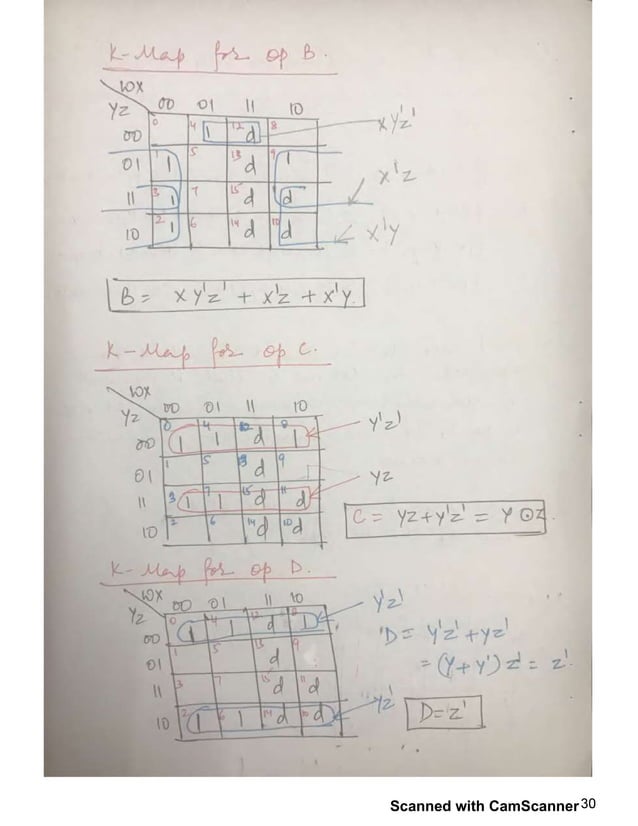 K-Map for op B.
WX
YZ 00 01 11 10
00 0 4 1 12 d 8 xy'z'
01 1 1 5 13 d 9 1 x'z
11 3 1 7 15 d d
10 2 1 6 14 d 10 d x'y
B = xy'z' + x'z + x'y.
K-Map for op C.
WX
YZ 00 01 11 10
00 0 1 4 1 12 d 8 1 y'z'
01 1 5 13 d 9 yz
11 3 1 7 1 15 d 11 d
10 2 6 14 d 10 d
C = yz + y'z' = y ⊙ z.
K-Map for op D.
WX
YZ 00 01 11 10 y'z'
00 0 1 4 1 12 d 8 1
D = y'z' + yz'
01 1 5 13 d 9
= (y + y') z' = z'.
11 3 7 15 d 11 d
10 2 1 6 1 14 d 10 d yz'
D = z'
Scanned with CamScanner 30